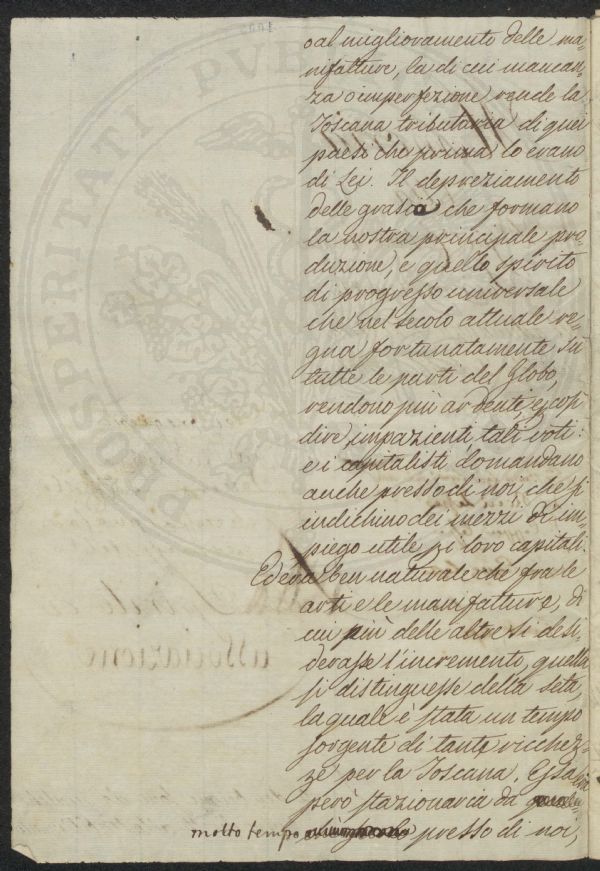 o al miglioramento delle ma-
nifatture, la di cui mancan-
za o imperfezione rende la
Toscana tributaria di quei
paesi che prima lo erano
di Lei. Il depreziamento
delle grasce che formano
la nostra principale pro-
duzione, e quello spirito
di progresso universale
che nel secolo attuale re-
gna fortunatamente su
tutte le parti del Globo,
rendono più ardenti, e, così
dire impazienti tali voti:
e i capitalisti domandano
anche presso di noi, che si
indichino dei mezzi di im-
piego utile pi loro capitali.
Ed era ben naturale che fra le
arti e le manifatture, di
cui più delle altre si desi-
derasse l'incremento, quella
si distinguesse della seta,
la quale è stata un tempo
sorgente di tante ricchez-
ze per la Toscana. Essa
però stazionaria da
molto tempo presso di noi,
PROSPERITATI PVB